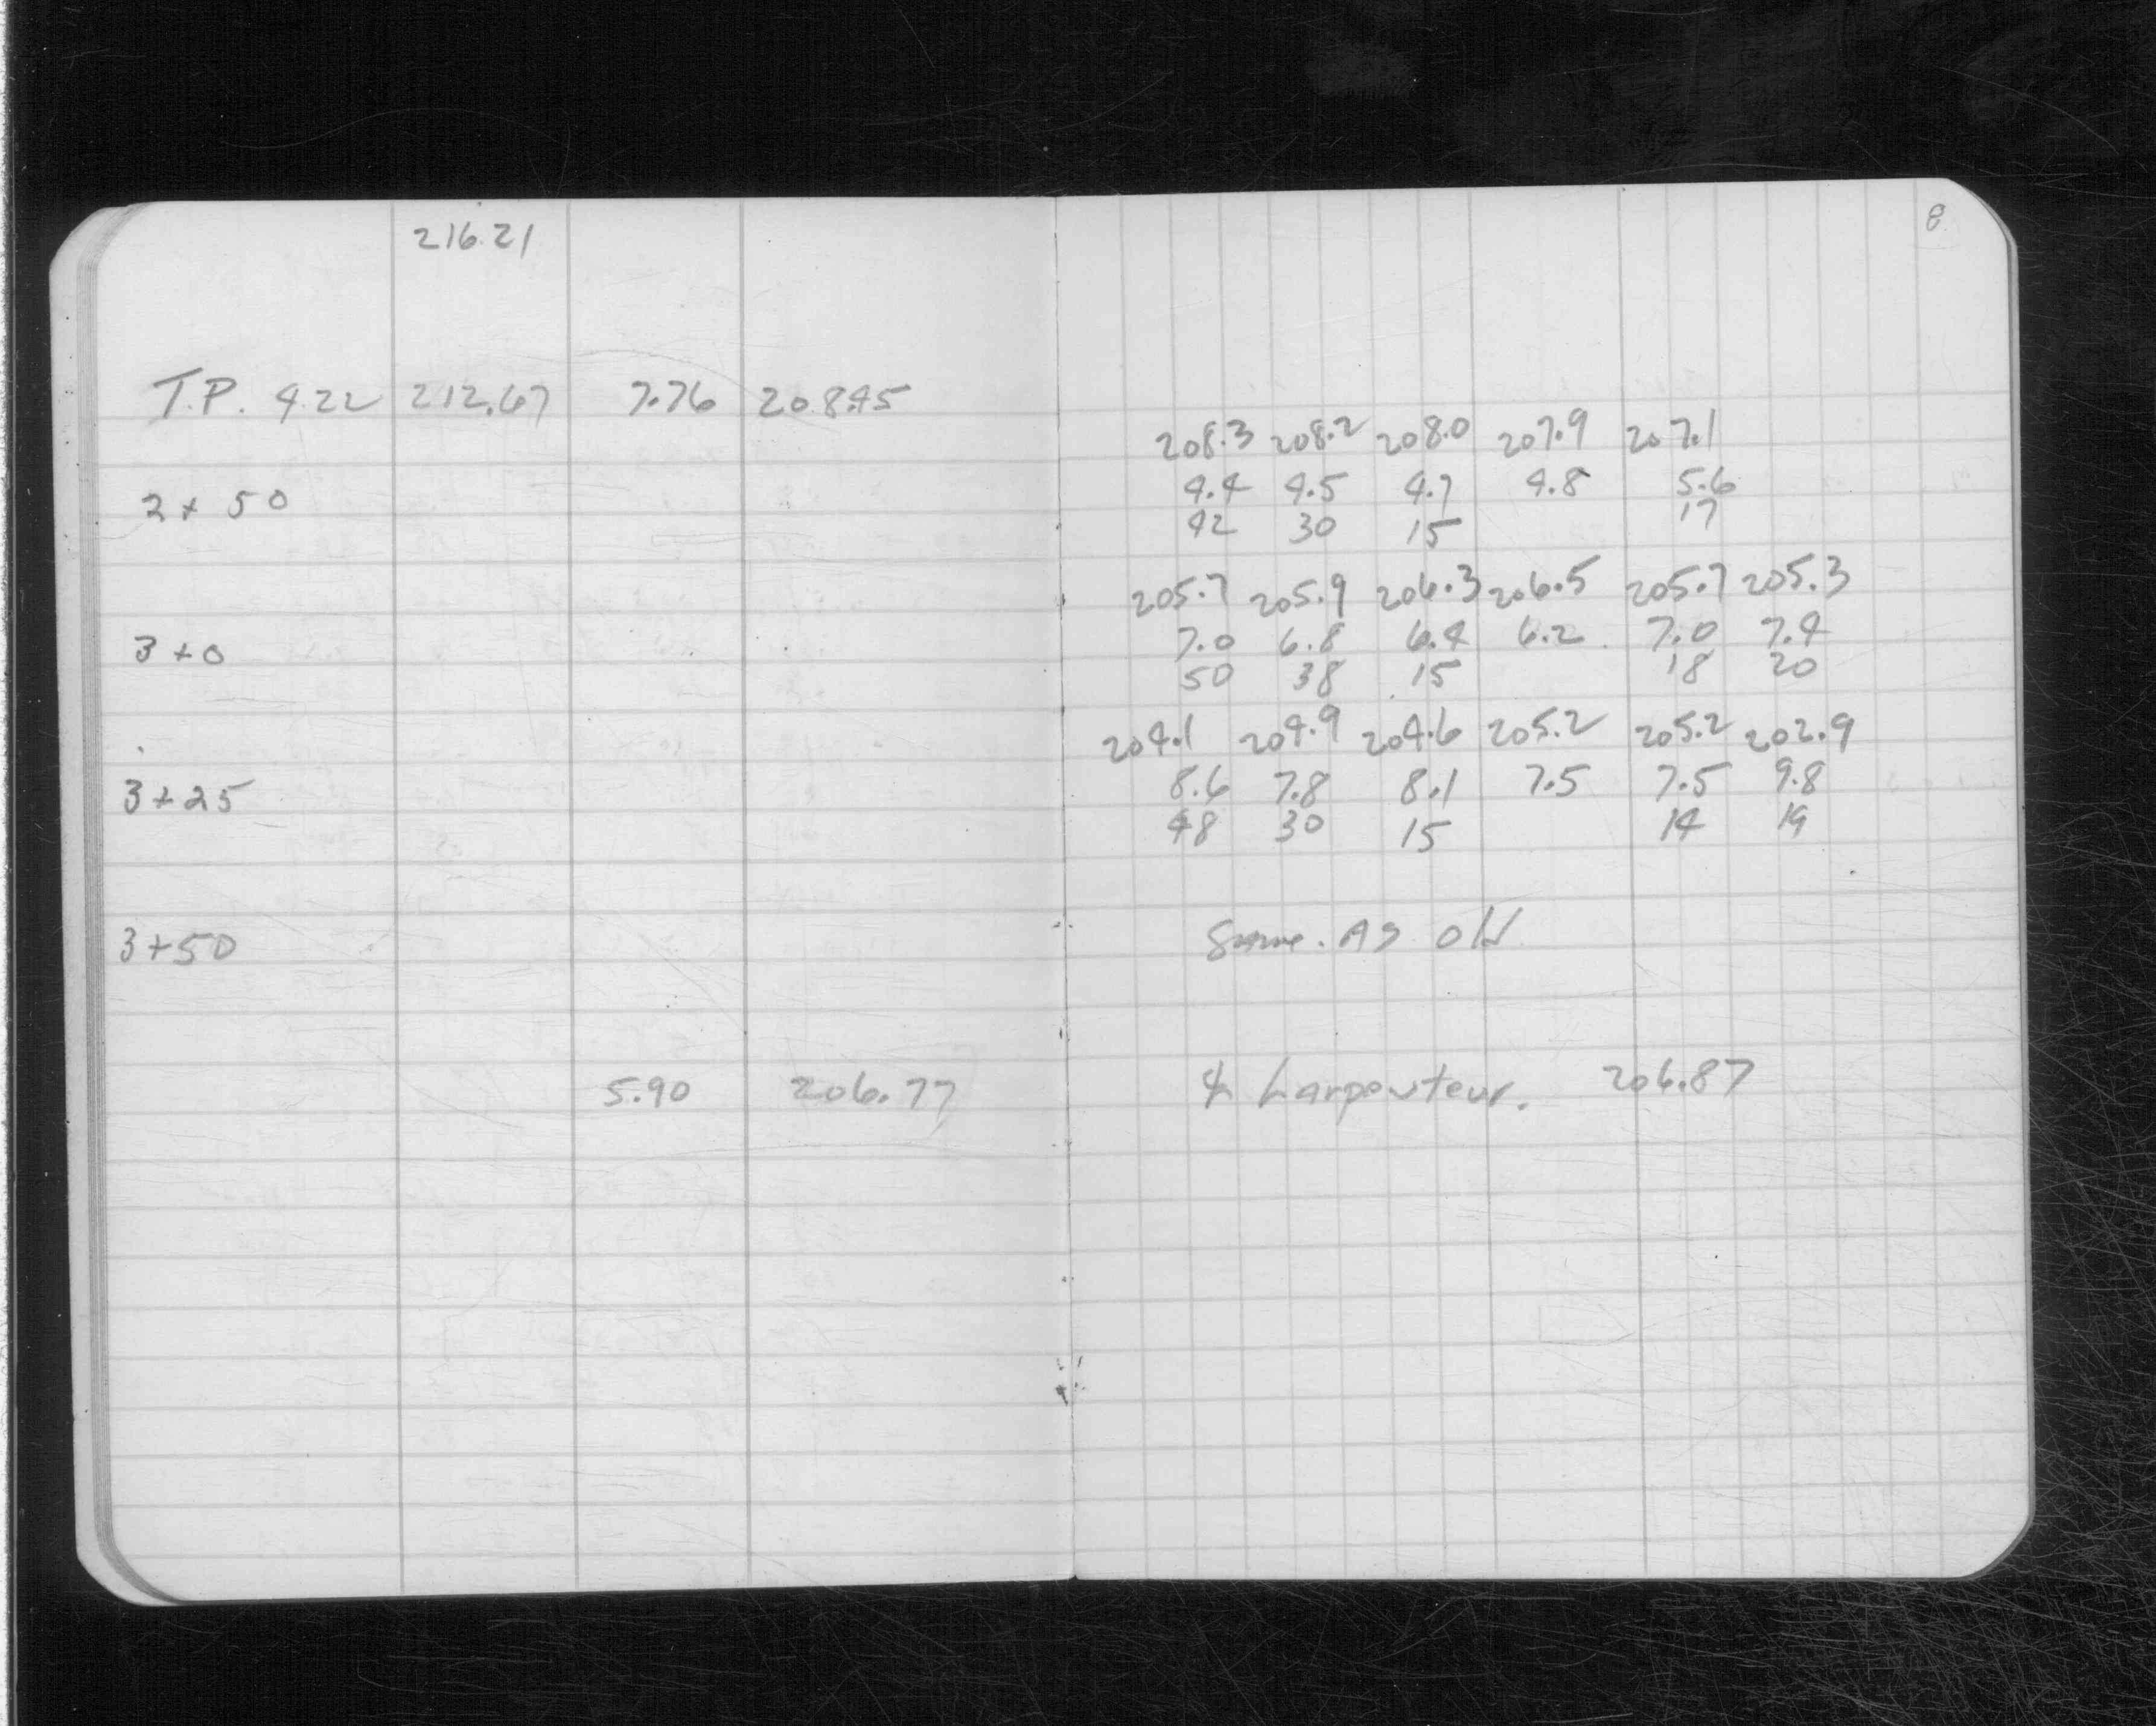 216.21
8
T.P. 4.22 212.67 7.76 208.45
208.3 208.2 208.0 207.9 207.1
2+50
4.4 4.5 4.7 4.8 5.6
42 30 15 17
205.7 205.9 206.3 206.5 205.7 205.3
3+0
7.0 6.8 6.4 6.2 7.0 7.4
50 38 15 18 20
204.1 204.9 204.6 205.2 205.2 202.9
3+25
8.6 7.8 8.1 7.5 7.5 9.8
48 30 15 14 19
3+50 Same. As old
5.90 206.77 & Larpenteur. 206.87